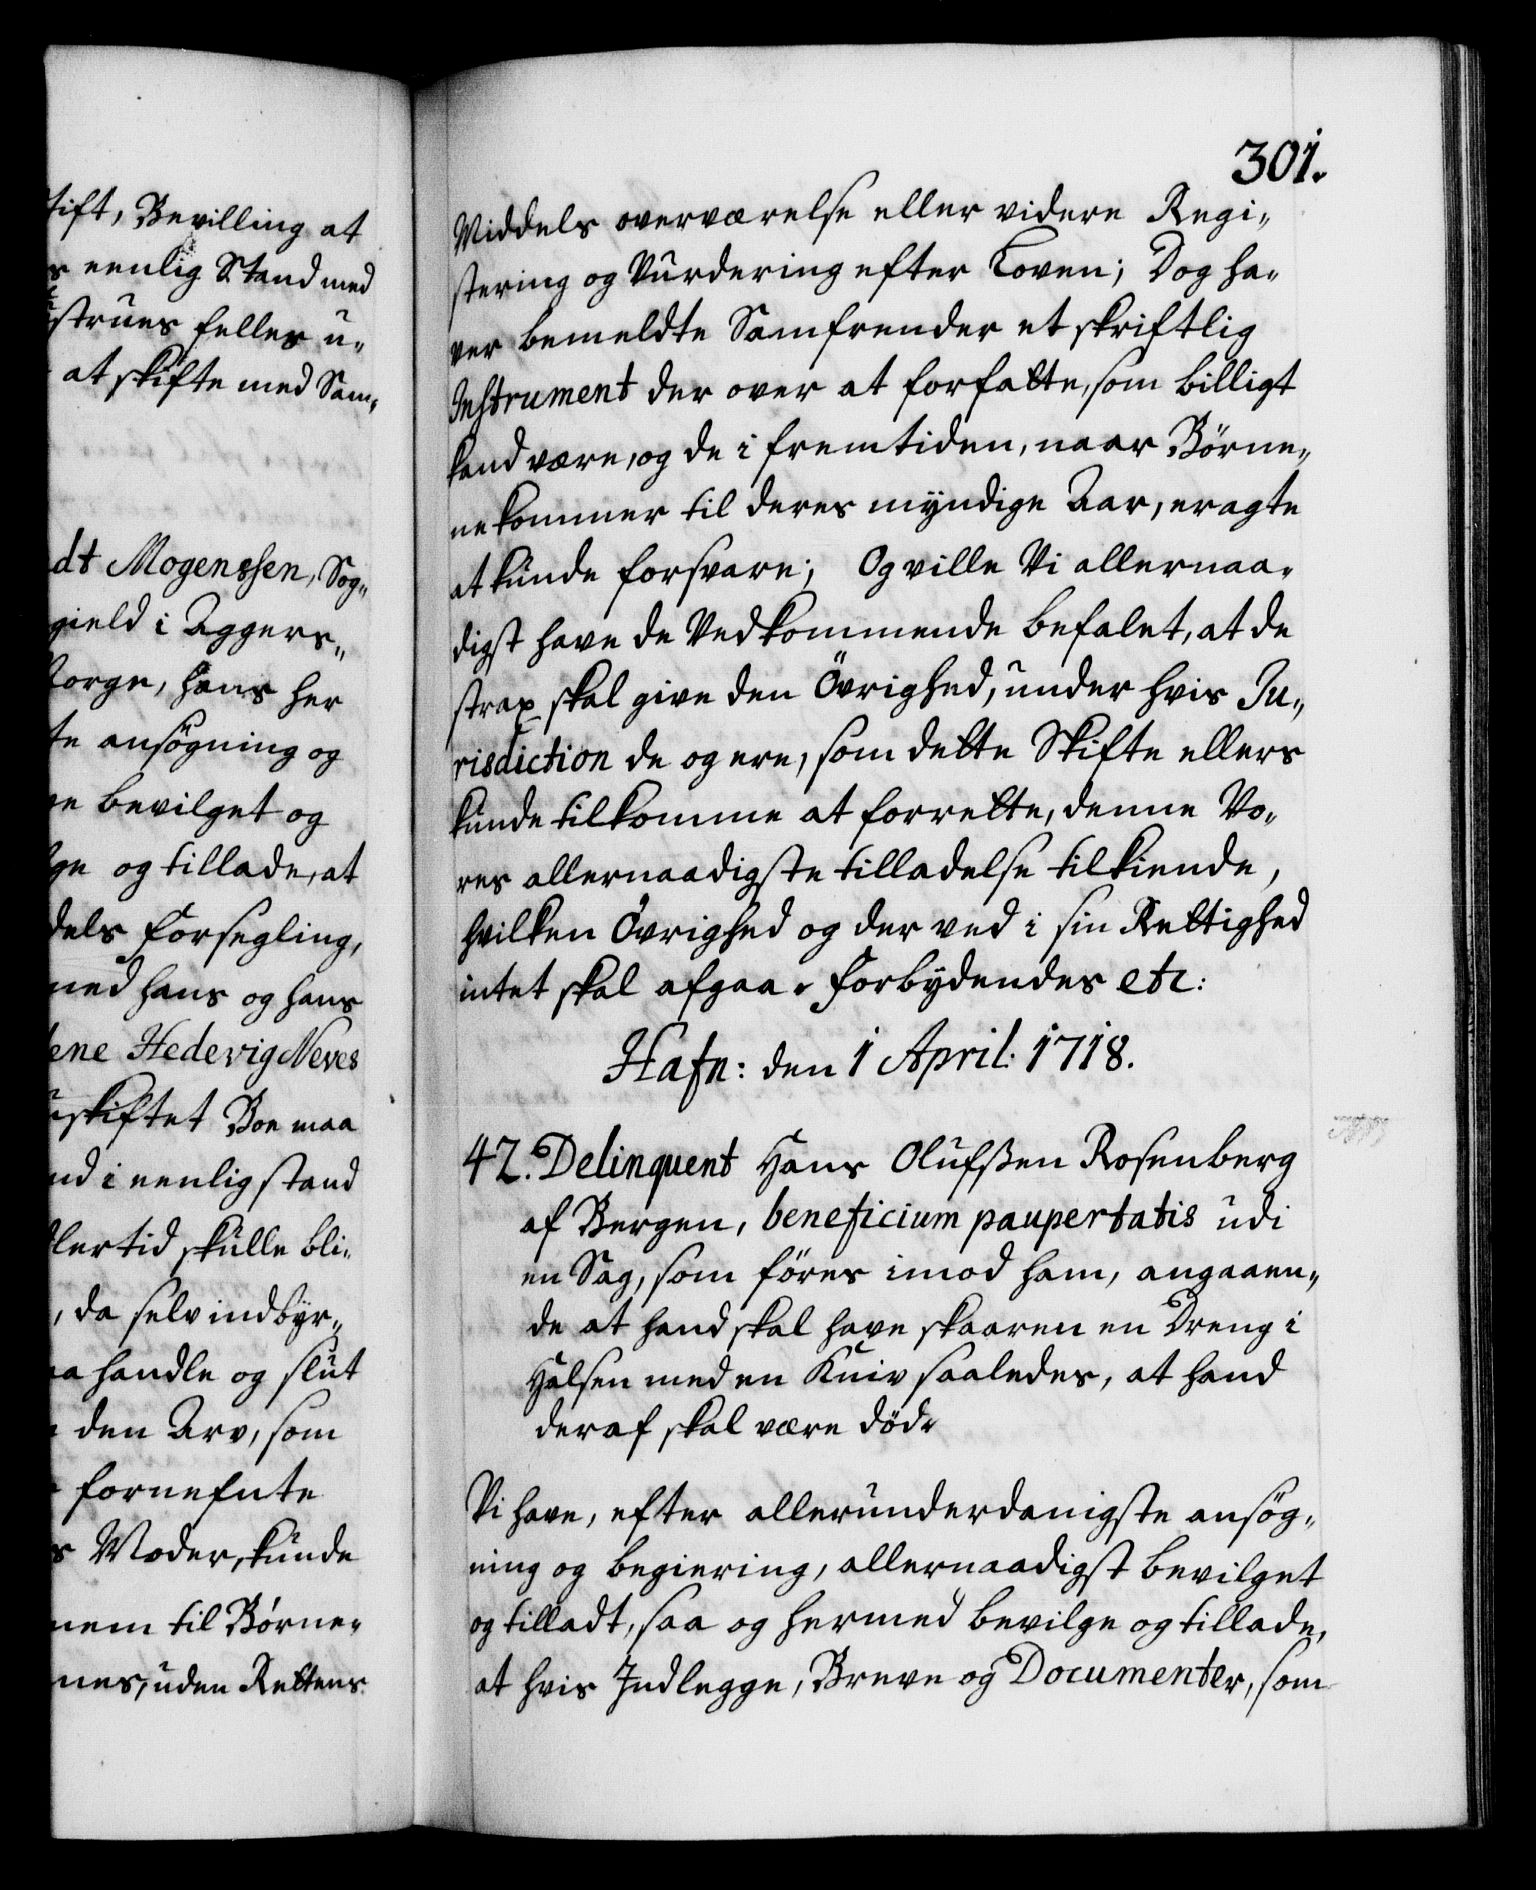 tift, Bevilling at
eenlig Stand med
strues felles u-
at skifte med Sam-
dt Mogenssen, Sog-
gield i Aggers-
Norge, hans her
te ansøgning og
ve bevilget og
lge og tillade, at
dels forsegling,
med hans og hans
lene Hedevig Neves
uskiftet Boe maa
nd i eenlig stand
lertid skulle bli-
, da selv indbyr-
aa handle og slut
den Arv, som
fornefnte
s Moder, kunde
nem til Børne-
nes, uden Rettens
301.
Middels overværelse eller videre Regi-
stering og Vurdering efter Loven; Dog ha-
ver bemeldte Samfrender et skriftlig
Instrument der over at forfatte, som billigt
kand være, og de i fremtiden, naar Børne-
ne kommer til deres myndige Aar, eragte
at kunde forsvare; Og ville Vi allernaa-
digst have de Vedkommende befalet, at de
strax skal give den Övrighed, under hvis Ju-
risdiction de og ere, som dette Skifte ellers
kunde tilkomme at forrette, denne Vo-
res allernaadigste tilladelse tilkiende,
hvilken Övrighed og der ved i sin Rettighed
intet skal afgaa. Forbydendes etc:
Hafn: den 1 April: 1718.
42. Delinquent Hans Olufsen Rosenberg
af Bergen, beneficium paupertatis udi
en Sag, som føres imod ham, angaaen-
de at hand skal have skaaren en Dreng i
Halsen med en Kniv saaledes, at hand
deraf skal være død.
Vi have, efter allerunderdanigste ansøg-
ning og begiering, allernaadigst bevilget
og tilladt, saa og hermed bevilge og tillade,
at hvis Indlegge, Breve og Documenter, som